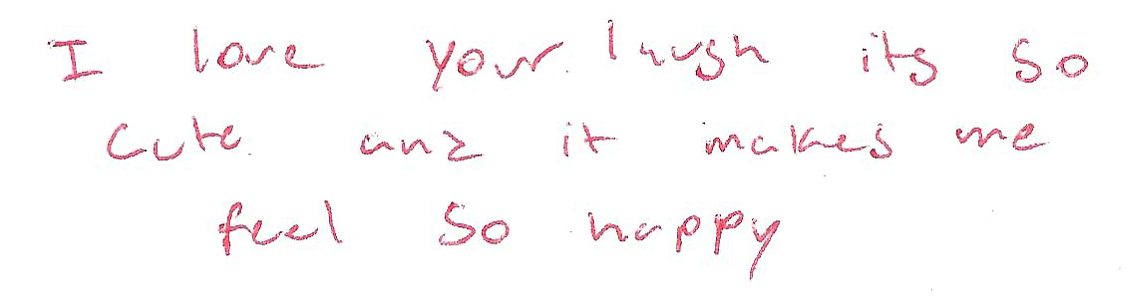 I love your laugh its so
cute and it makes me
feel so happy